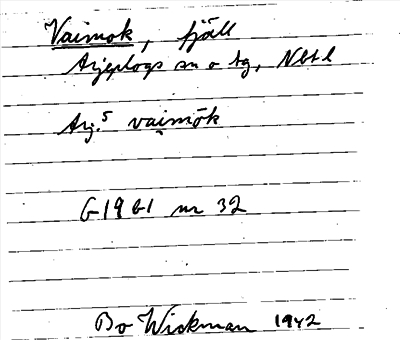 Vaimok, fjäll
Arjeplogs sn o tg, Nbtl
Arj.⁵ vai̯mōk
G19 61 nr 32
Bo Wickman 1942